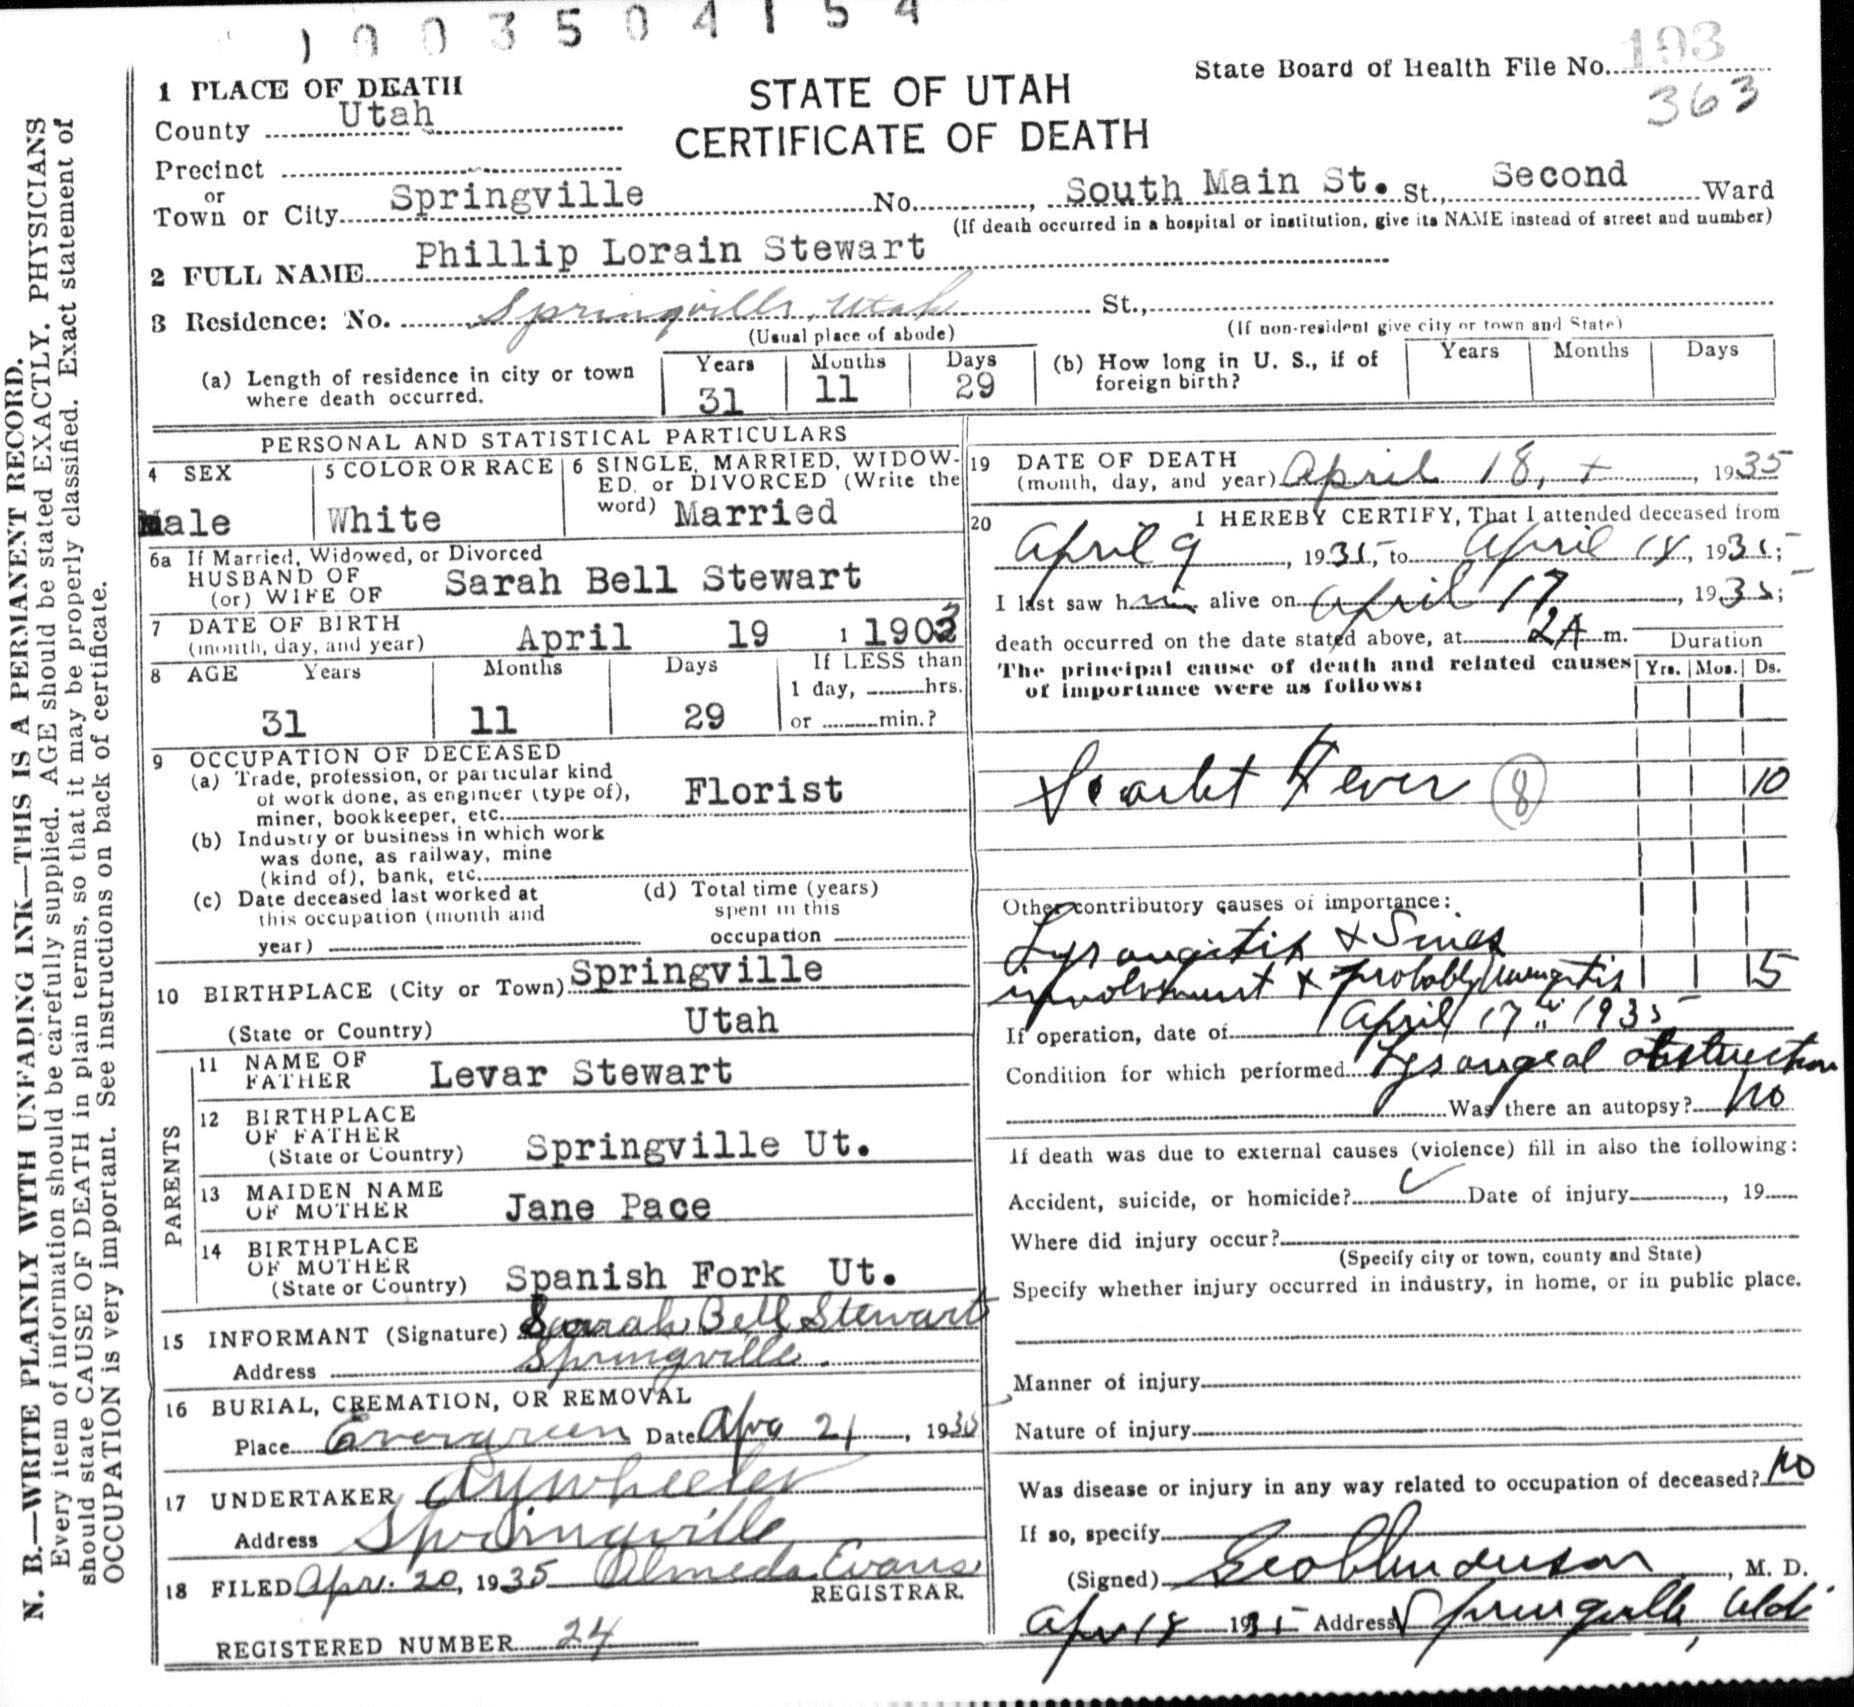 1003504154
State Board of Health File No. 193
363
STATE OF UTAH
CERTIFICATE OF DEATH
1 PLACE OF DEATH
County Utah
Precinct
or
Town or City Springville No. , South Main St. St., Second Ward
(If death occurred in a hospital or institution, give its NAME instead of street and number)
2 FULL NAME Phillip Lorain Stewart
3 Residence: No. Springville, Utah St.,
(Usual place of abode) (If non-resident give city or town and State)
(a) Length of residence in city or town where death occurred. Years 31 Months 11 Days 29
(b) How long in U. S., if of foreign birth? Years Months Days
PERSONAL AND STATISTICAL PARTICULARS
4 SEX
Male
5 COLOR OR RACE
White
6 SINGLE, MARRIED, WIDOW-
ED, or DIVORCED (Write the
word) Married
6a If Married, Widowed, or Divorced
HUSBAND OF
(or) WIFE OF Sarah Bell Stewart
7 DATE OF BIRTH
(month, day, and year) April 19 1 1903
8 AGE Years Months Days If LESS than
1 day, hrs.
31 11 29 or min.?
9 OCCUPATION OF DECEASED
(a) Trade, profession, or particular kind
of work done, as engineer (type of),
miner, bookkeeper, etc. Florist
(b) Industry or business in which work
was done, as railway, mine
(kind of), bank, etc.
(c) Date deceased last worked at
this occupation (month and
year)
(d) Total time (years)
spent in this
occupation
10 BIRTHPLACE (City or Town) Springville
(State or Country) Utah
PARENTS
11 NAME OF
FATHER Levar Stewart
12 BIRTHPLACE
OF FATHER
(State or Country) Springville Ut.
13 MAIDEN NAME
OF MOTHER Jane Pace
14 BIRTHPLACE
OF MOTHER
(State or Country) Spanish Fork Ut.
15 INFORMANT (Signature) Sarah Bell Stewart
Address Springville
16 BURIAL, CREMATION, OR REMOVAL
Place Evergreen Date Apr 21, 1935
17 UNDERTAKER A Y Wheeler
Address Springville
18 FILED Apr. 20, 1935 Almeda Evans
REGISTRAR.
REGISTERED NUMBER 24
19 DATE OF DEATH
(month, day, and year) April 18, + , 1935
20 I HEREBY CERTIFY, That I attended deceased from
April 9, 1935, to April 18, 1935;
I last saw him alive on April 17, 1935;
death occurred on the date stated above, at 2 A m.
The principal cause of death and related causes
of importance were as follows:
Duration
Yrs. Mos. Ds.
Scarlet Fever 8 10
Other contributory causes of importance:
& Sinus
involvment & probably 5
If operation, date of April 17th 1935
Condition for which performed obstruction
Was there an autopsy? No
If death was due to external causes (violence) fill in also the following:
Accident, suicide, or homicide? Date of injury , 19
Where did injury occur?
(Specify city or town, county and State)
Specify whether injury occurred in industry, in home, or in public place.
Manner of injury
Nature of injury
Was disease or injury in any way related to occupation of deceased? No
If so, specify
(Signed) Geo Anderson, M. D.
Apr 18 1935 Address Springville, Utah
N. B.—WRITE PLAINLY WITH UNFADING INK—THIS IS A PERMANENT RECORD.
Every item of information should be carefully supplied. AGE should be stated EXACTLY. PHYSICIANS
should state CAUSE OF DEATH in plain terms, so that it may be properly classified. Exact statement of
OCCUPATION is very important. See instructions on back of certificate.